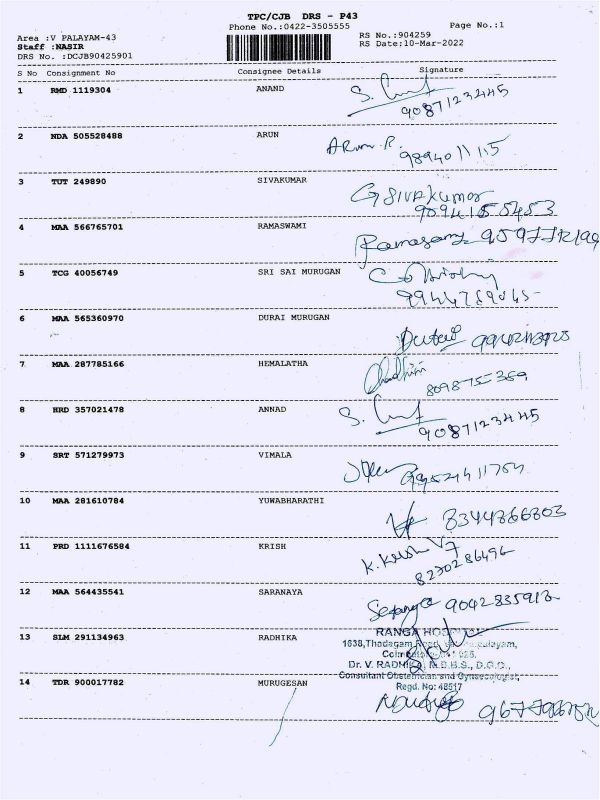 TPC/CJB DRS - P43
Phone No.:0422-3505555
Page No.:1
Area :V PALAYAM-43
RS No.:904259
Staff :NASIR
RS Date:10-Mar-2022
DRS No. :DCJB90425901
S No Consignment No Consignee Details Signature
1 RMD 1119304 ANAND
9087123445
2 NDA 505528488 ARUN
Arun.R.
9894011115
3 TUT 249890 SIVAKUMAR
G Sivakumar
4 MAA 566765701 RAMASWAMI
Ramasamy
5 TCG 40056749 SRI SAI MURUGAN
6 MAA 565360970 DURAI MURUGAN
7 MAA 287785166 HEMALATHA
8098755369
8 HRD 357021478 ANNAD
9087123445
9 SRT 571279973 VIMALA
10 MAA 281610784 YUWABHARATHI
8344866803
11 PRD 1111676584 KRISH
K. Krish
8270286496
12 MAA 564435541 SARANAYA
9042835912
13 SLM 291134963 RADHIKA
RANGA
1638, Thadagam Road,
Dr. V. RADHIKA, M.B.B.S., D.G.O.,
Consultant Obstetrician and Gynaecologist,
Regd. No: 48517
14 TDR 900017782 MURUGESAN